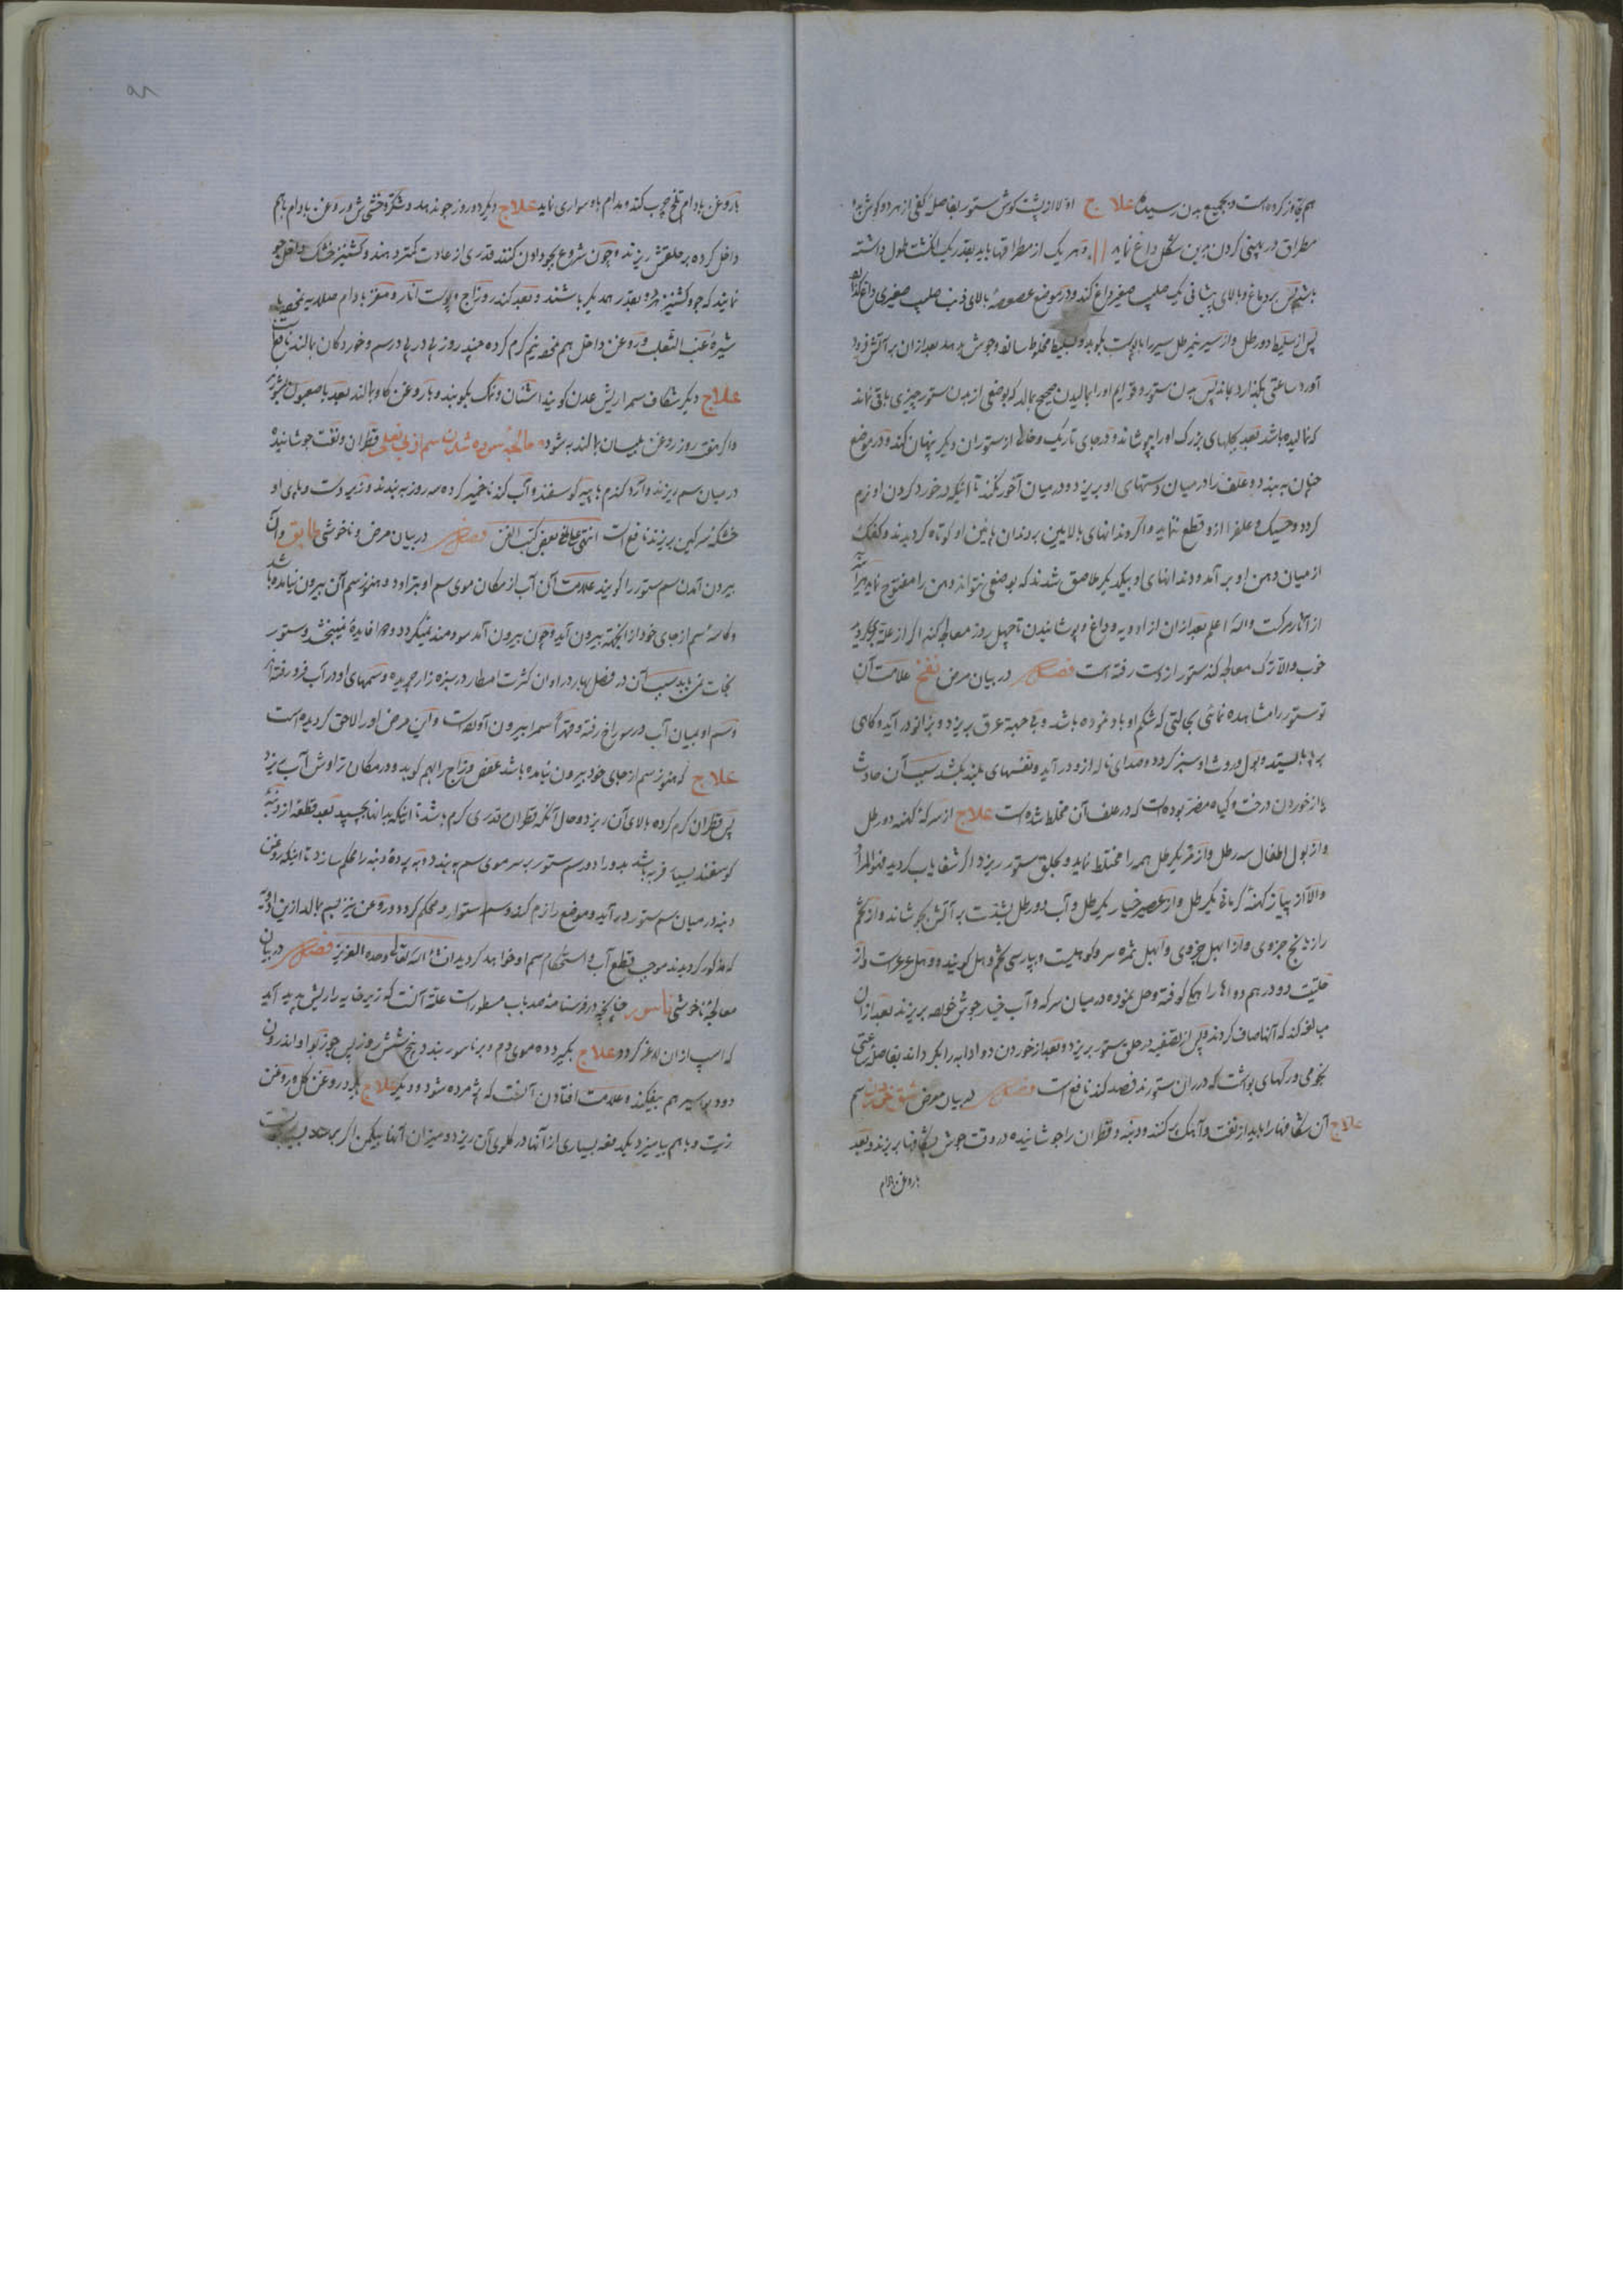 هم تجاوز کرده است و بجمیع بدن رسیده علاج اولا از پشت گوش ستور بفاصل کفی از هر دو گوش بدو
مطراق در پهنی گردن برین شکل داغ نماید || و هر یک از مطراقها باید بقدر یک انگشت طول داشته
باشد پس بر دماغ و بالای پیشانی یک صلیب صغیر داغ کند و در موضع عصوصه بالای ذنب صلیب صغیری داغ
پس از سلیط دو رطل و از سیر نیم رطل سیر را با پوست بکوبد و بسلیط مخلوط سازد و جوش بدهد بعد از آن بر آتش فرود
آورد ساعتی بگذارد بماند پس بدن ستور و قوایم او را بمالیدن صحیح بمالد که بوضعی از بدن ستور چیزی باقی نماند
که نمالیده باشد بعد بجلهای بزرگ او را بپوشاند و در جای تاریک و خالی از ستوران دیگر پنهان کند و در موضع
چنان به بندد و علف را در میان دستهای او بریزد و در میان آخور نکند تا اینکه در خورد کردن او نرم
گردد و حسیک و علف را ازو قطع ننماید و اگر دندانهای بالایین بر دندان پائین او کوتاه گردیدند و کفک
از میان دهن او بر آمد و دندانهای او بیکدیگر ملاصق شدند که بوضعی نتواند دهن را مفتوح نماید
از آثار مرگست والله اعلم بعد از آن از ادویه و داغ و پوشانیدن تا چهل روز معالجه کند اگر از علة
خوب والا ترک معالجه کند ستور از دست رفته است فصل در بیان مرض نفخ علامت آن
تو ستور را مشاهده نمائی بحالتی که شکم او باد نموده باشد و بی جهة عرق بریزد و بزانو در آید و گاهی
بر پا بایستد و بول و روث او سبز گردد و صدای ناله ازو در آید و نفسهای بلند بکشد سبب آن حادث
یا از خوردن درخت و گیاه مضر بوده است که در علف آن مخلط شده است علاج از سرکه کهنه دو رطل
و از بول اطفال سه رطل و از قند یکرطل همه را مختلط نماید و بحلق ستور ریزد اگر شفا یاب گردید فهو المراد
والا از پیاز کهنه کرمانه یکرطل و از عصیر خیار یکرطل و آب دو رطل بشدت بر آتش بجوشاند و از تخم
رازیانج جزوی و از ابهل جزوی و ابهل ثمره سرو کوهیست و بپارسی تخم وهل گویند و وهل عرعرست و از
حلتیت دو درهم دواها را هم کوفته و حل نموده در میان سرکه و آب خیار جوش خورده بریزند بعد از آن
مبالغه کند که آنها صاف گردند پس از تصفیه در حلق ستور بریزد و بعد از خوردن دوا دابه را بگرداند بفاصل ساعتی
بخومی و رگهای بواشت که در ران ستورند فصد کند نافع است فصل در بیان مرض شق شدن سم
علاج آن شکافها را باید از نفت و آهک پر کنند و دنبه و قطران را جوشانیده در وقت جوش بشکافها بریزند و بعد
با روغن بادام
با روغن بادام تلخ چرب کند و مدام باو سواری نماید علاج دیگر دو روز جو ندهد و شکر و خشی ش و روغن بادام باهم
داخل کرده بر حلقش ریزند و چون شروع بجو دادن کنند قدری از عادت کمتر دهند و گشنیز خشک داخل جو
نمایند که جو و گشنیز هر دو بقدر همدیگر باشند و بعد کندر و زاج و پوست انار و مغز بادام صلایه نموده با
شیره عنب الثعلب و روغن داخل هم نموده نیم گرم کرده چند روز پی در پی در سم و خوردگان بمالند نافع است
علاج دیگر شکاف سم را ریش عدن گویند اشنان و نمک بکوبند و با روغن گاو بمالند بعد با صعبول بشویند
و اگر هفت روز روغن بلسان بمالند به شود معالجه سوده شدن سم از بی نعلی قطران و نفت جوشانیده
در میان سم ریزند و آرد گندم با پیه گوسفند و آب گندنا خمیر کرده سه روز به بندند و زیر دست و پای او
خشکه سرکین بریزند نافع است انتهی ما فی بعض کتب الفن فصل در بیان مرض و ناخوشی طابق و آن
بیرون آمدن سم ستور را گویند علامت آن آب از مکان موی سم او بتراود و هنوز سم آن بیرون نیامده باشد
و کاسه سم از جای خود از انگخته بیرون آید و چون بیرون آمد سودمند نمیگردد و دوا فایده نمیبخشد و ستور
نجات نمی یابد سبب آن در فصل بهار در اوان کثرت امطار در سبزه زار چریده و سمهای او در آب فرو رفته اند
و سم او بمیان آب در سوراخ رفته و قهرا سم را بیرون آورده است و این مرض او را لاحق گردیده است
علاج که هنوز سم از جای خود بیرون نیامده باشد عفص و زاج را بهم کوبد و در مکان تراوش آب بریزد
پس قطران گرم کرده بالای آن ریزد و حال آنکه قطران قدری گرم باشد تا اینکه بدانها بچسپید بعد قطعه از دنبه
گوسفند بسیار فربه باشد بدورا دور سم ستور بر سر موی سم به بندد و به پرده دنبه را محکم سازد تا اینکه روغن
دنبه در میان سم ستور در آید و موضع را نرم کند و سم استوار و محکم گردد و روغن نیز بسم بمالد ازین ادویه
که مذکور گردیدند موجب قطع آب و استحکام سم او خواهد گردید ان شاء الله تعالی وحده العزیز فصل در بیان
معالجه ناخوشی ناسور چنانچه در فرسنامه صد باب مسطور است علة آنست که زیر خایه را ریش پدید آید
که اسپ از ان لاغر گردد علاج بگیرد ده موی دم و بر ناسور بندد پنج شش روز پس چوز بوا و اندرون
دود بواسیر هم بیفکند و علامت افتادن آنست که پژمرده شود و دیگر علاج بگیرد روغن گل و روغن
زیت و باهم بیامیزد یکدفعه بسیاری از آنها در گلوی آن ریزد و میزان آنها بیکمن اگر